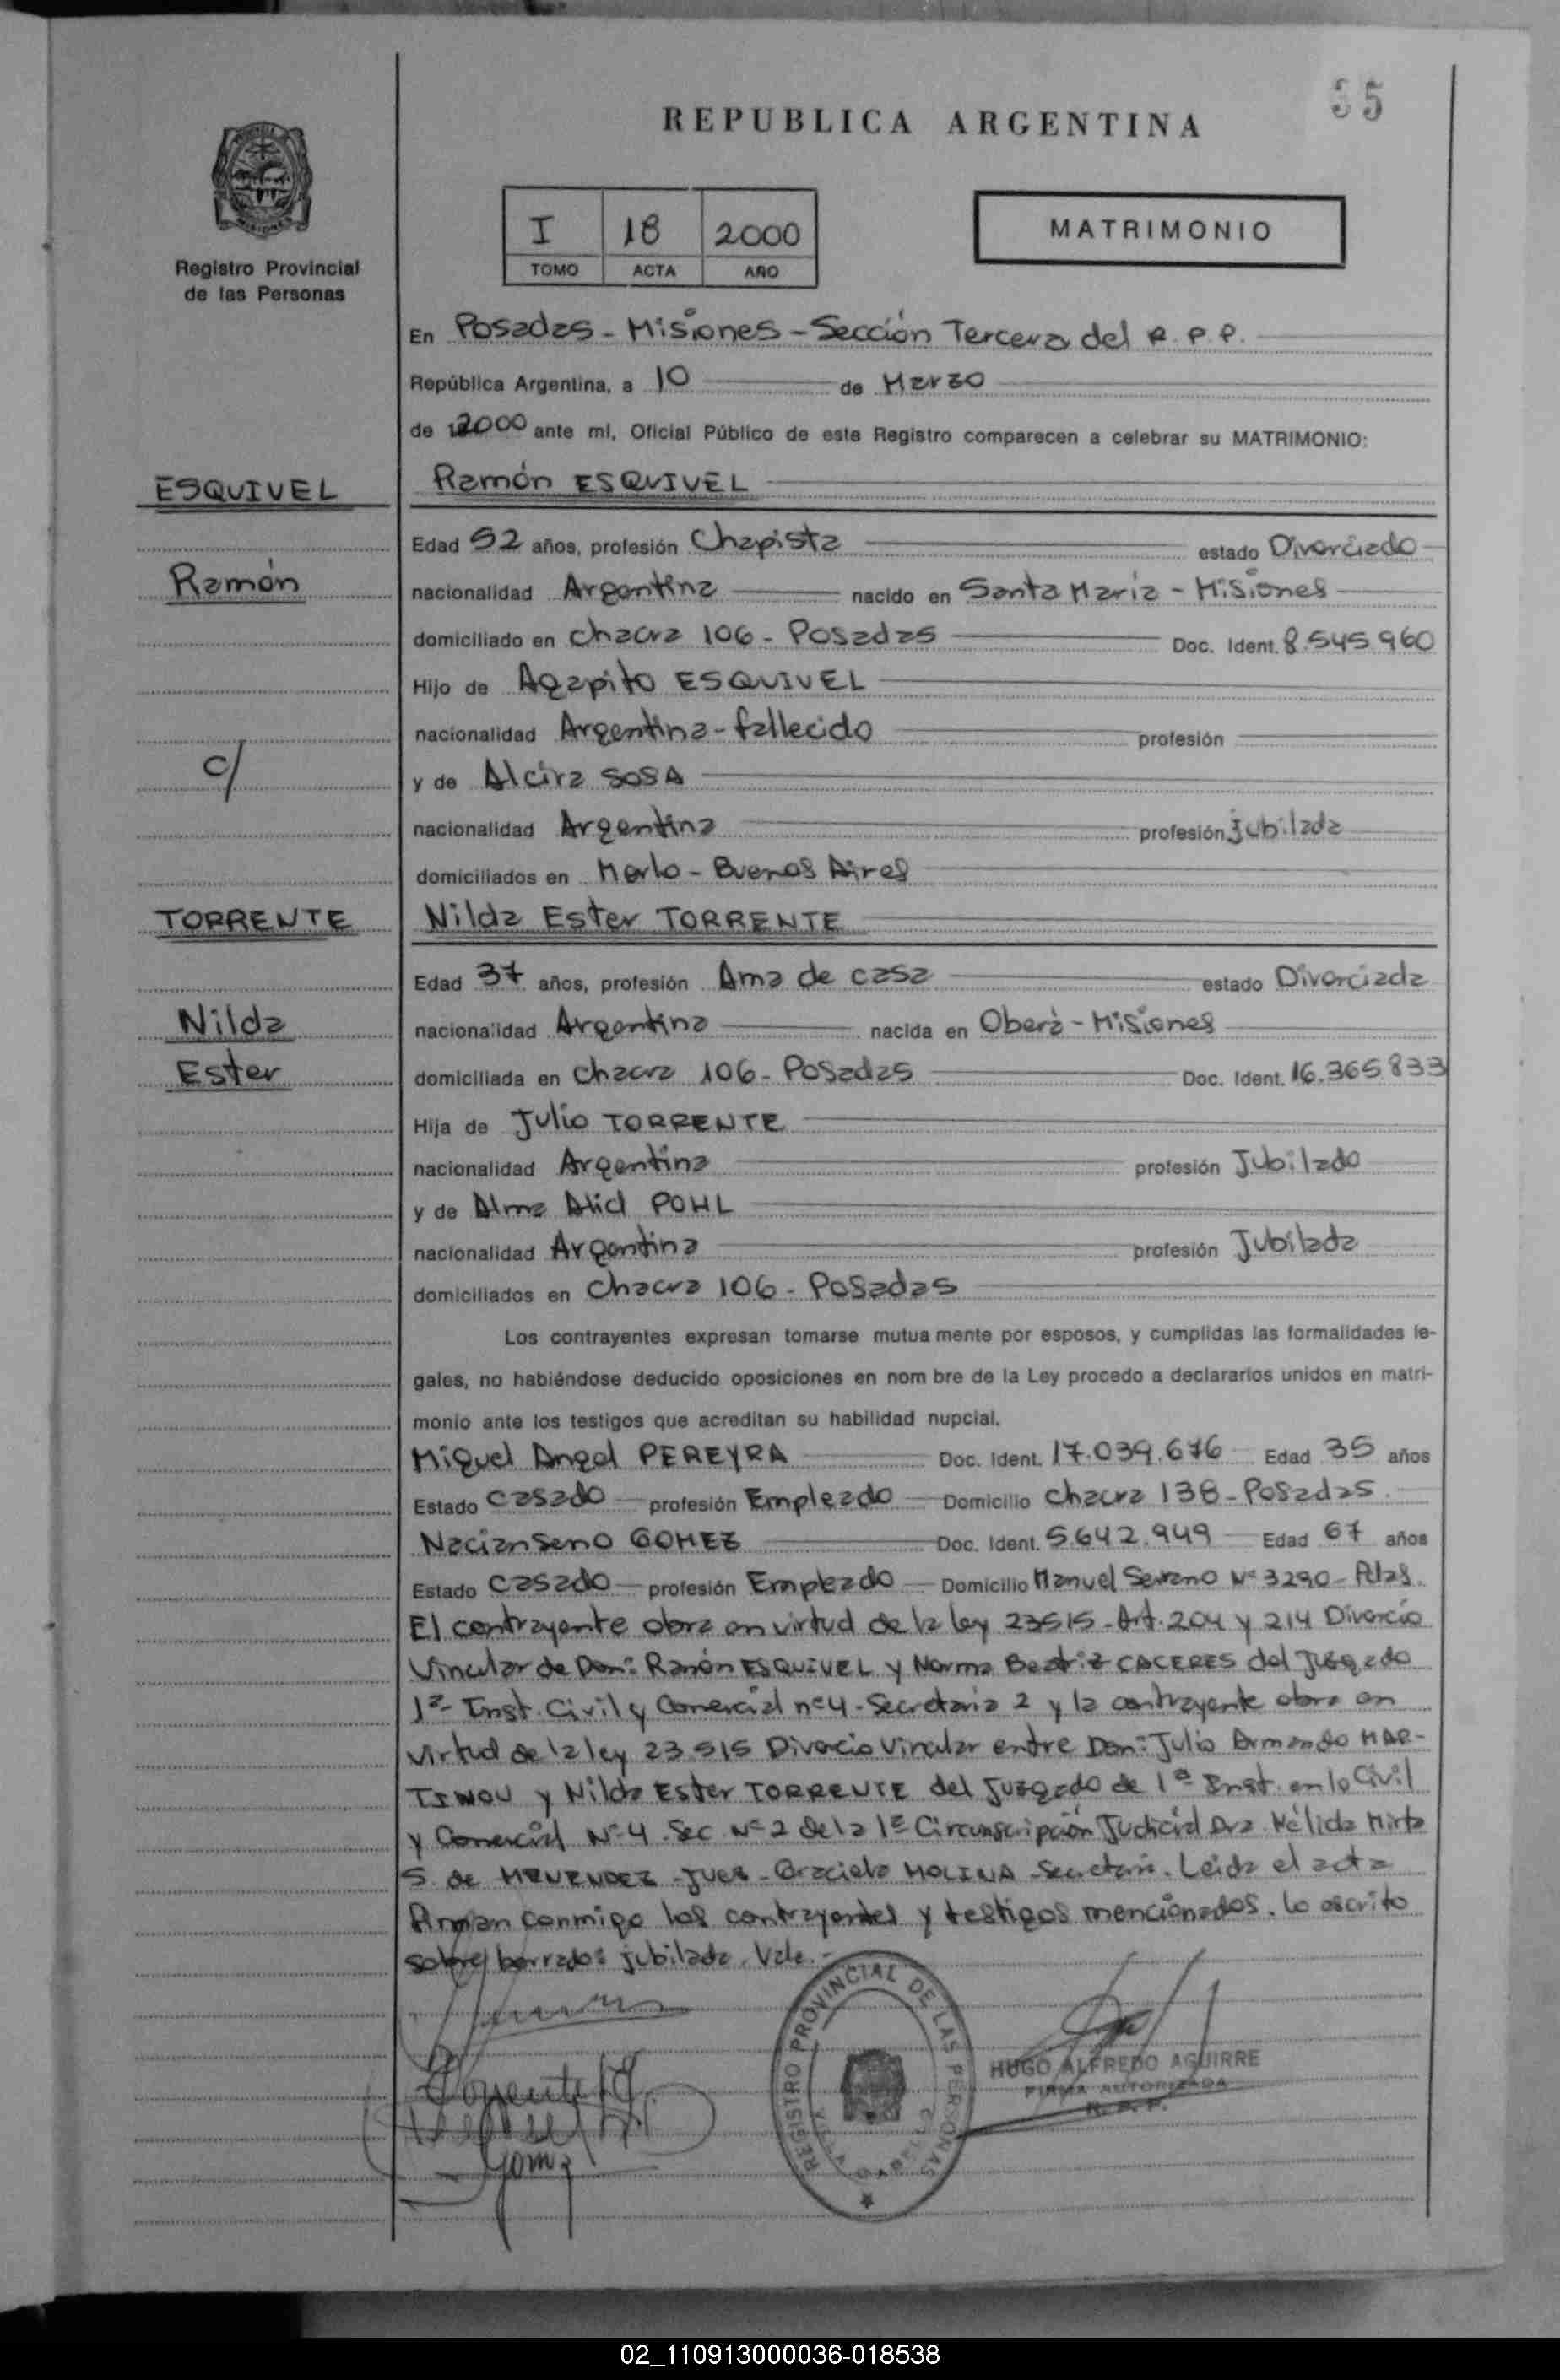 35
REPUBLICA ARGENTINA
I 18 2000
TOMO ACTA AÑO
MATRIMONIO
Registro Provincial
de las Personas
En Posadas - Misiones - Sección Tercera del R.P.P.
República Argentina, a 10 de Marzo
de 2000 ante mí, Oficial Público de este Registro comparecen a celebrar su MATRIMONIO:
ESQUIVEL
Ramón ESQUIVEL
Edad 52 años, profesión Chapista estado Divorciado
Ramón
nacionalidad Argentina nacido en Santa María - Misiones
domiciliado en chacra 106 - Posadas Doc. Ident. 8.545.960
Hijo de Agapito ESQUIVEL
nacionalidad Argentina - fallecido profesión
c/
y de Alcira SOSA
nacionalidad Argentina profesión jubilada
domiciliados en Merlo - Buenos Aires
TORRENTE
Nilda Ester TORRENTE
Edad 37 años, profesión Ama de casa estado Divorciada
Nilda
nacionalidad Argentina nacida en Oberá - Misiones
Ester
domiciliada en chacra 106 - Posadas Doc. Ident. 16.365.833
Hija de Julio TORRENTE
nacionalidad Argentina profesión Jubilado
y de Alma POHL
nacionalidad Argentina profesión Jubilada
domiciliados en Chacra 106 - Posadas
Los contrayentes expresan tomarse mutua mente por esposos, y cumplidas las formalidades le-
gales, no habiéndose deducido oposiciones en nom bre de la Ley procedo a declararlos unidos en matri-
monio ante los testigos que acreditan su habilidad nupcial.
Miguel Angel PEREYRA Doc. Ident. 17.039.676 Edad 35 años
Estado casado profesión Empleado Domicilio chacra 138 - Posadas.
Nacianseno GOMEZ Doc. Ident. 5.642.949 Edad 67 años
Estado casado profesión Empleado Domicilio Manuel Serrano Nº 3290 - Pdas.
El contrayente obra en virtud de la ley 23515 - Art. 204 y 214 Divorcio
Vincular de Don: Ramón ESQUIVEL y Norma Beatriz CACERES del Juzgado
1ª Inst. Civil y Comercial nº 4 - Secretaria 2 y la contrayente obra en
virtud de la ley 23.515 Divorcio Vincular entre Don: Julio Armando MAR-
TINOU y Nilda Ester TORRENTE del Juzgado de 1ª Inst. en lo Civil
y Comercial Nº 4. Sec. Nº 2 de la 1ª Circunscripción Judicial Dra. Nélida Mirta
S. de MENENDEZ - Juez - Graciela MOLINA - Secretaria. Leida el acta
firman conmigo los contrayentes y testigos mencionados. Lo escrito
sobre borrado: jubilada. Vale.-
REGISTRO PROVINCIAL DE LAS PERSONAS
HUGO ALFREDO AGUIRRE
FIRMA AUTORIZADA
R. P. P.
Gomz
02_110913000036-018538